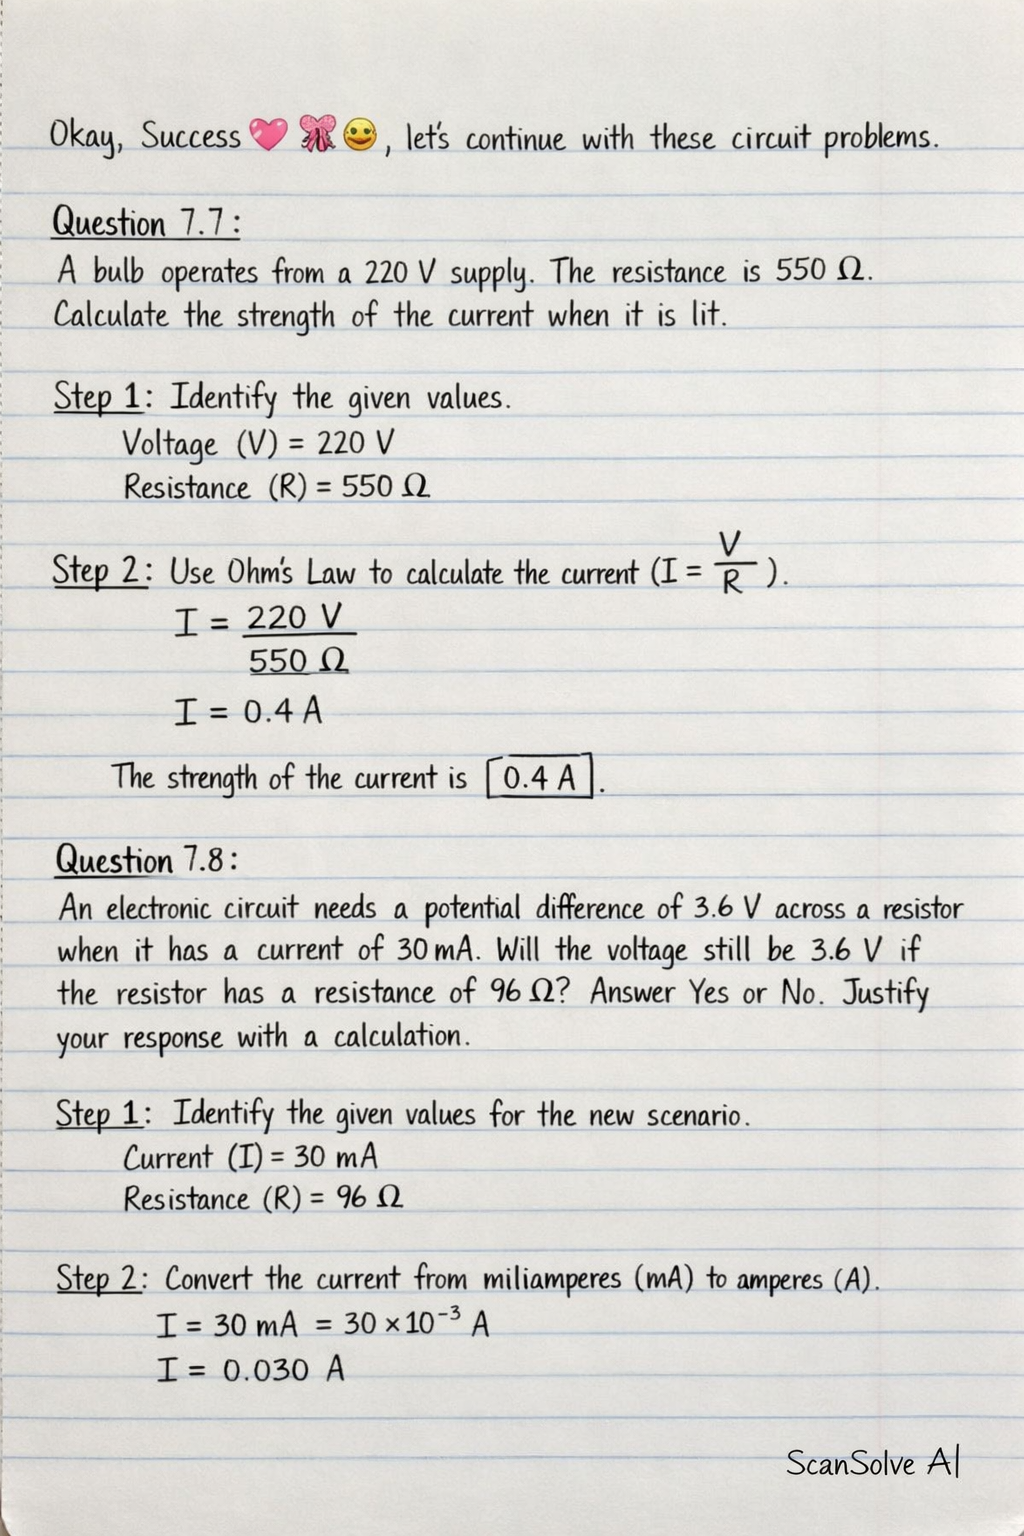 Okay, Success💖🎀🙂, let's continue with these circuit problems.
Question 7.7:
A bulb operates from a 220 V supply. The resistance is 550 Ω.
Calculate the strength of the current when it is lit.
Step 1: Identify the given values.
Voltage (V) = 220 V
Resistance (R) = 550 Ω
Step 2: Use Ohm's Law to calculate the current (I = V/R).
I = 220 V
550 Ω
I = 0.4 A
The strength of the current is 0.4 A.
Question 7.8:
An electronic circuit needs a potential difference of 3.6 V across a resistor
when it has a current of 30 mA. Will the voltage still be 3.6 V if
the resistor has a resistance of 96 Ω? Answer Yes or No. Justify
your response with a calculation.
Step 1: Identify the given values for the new scenario.
Current (I) = 30 mA
Resistance (R) = 96 Ω
Step 2: Convert the current from miliamperes (mA) to amperes (A).
I = 30 mA = 30 × 10⁻³ A
I = 0.030 A
ScanSolve AI